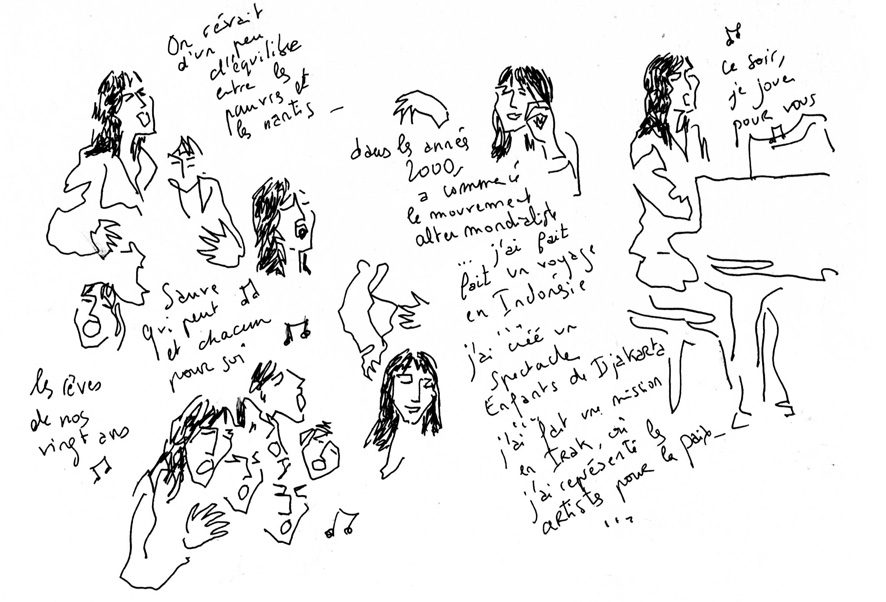 On rêvait
d'un peu
d'équilibre
entre les
pauvres et
les nantis –
Sauve
qui peut
et chacun
pour soi
les rêves
de nos
vingt ans
dans les annés
2000,
a commencé
le mouvement
altermondialiste
... j'ai fait
fait un voyage
en Indonésie
...
j'ai créé un
spectacle
Enfants de Djakarta
...
j'ai fait une mission
en Irak, où
j'ai représenté les
artistes pour la paix –
...
ce soir,
je joue
pour vous